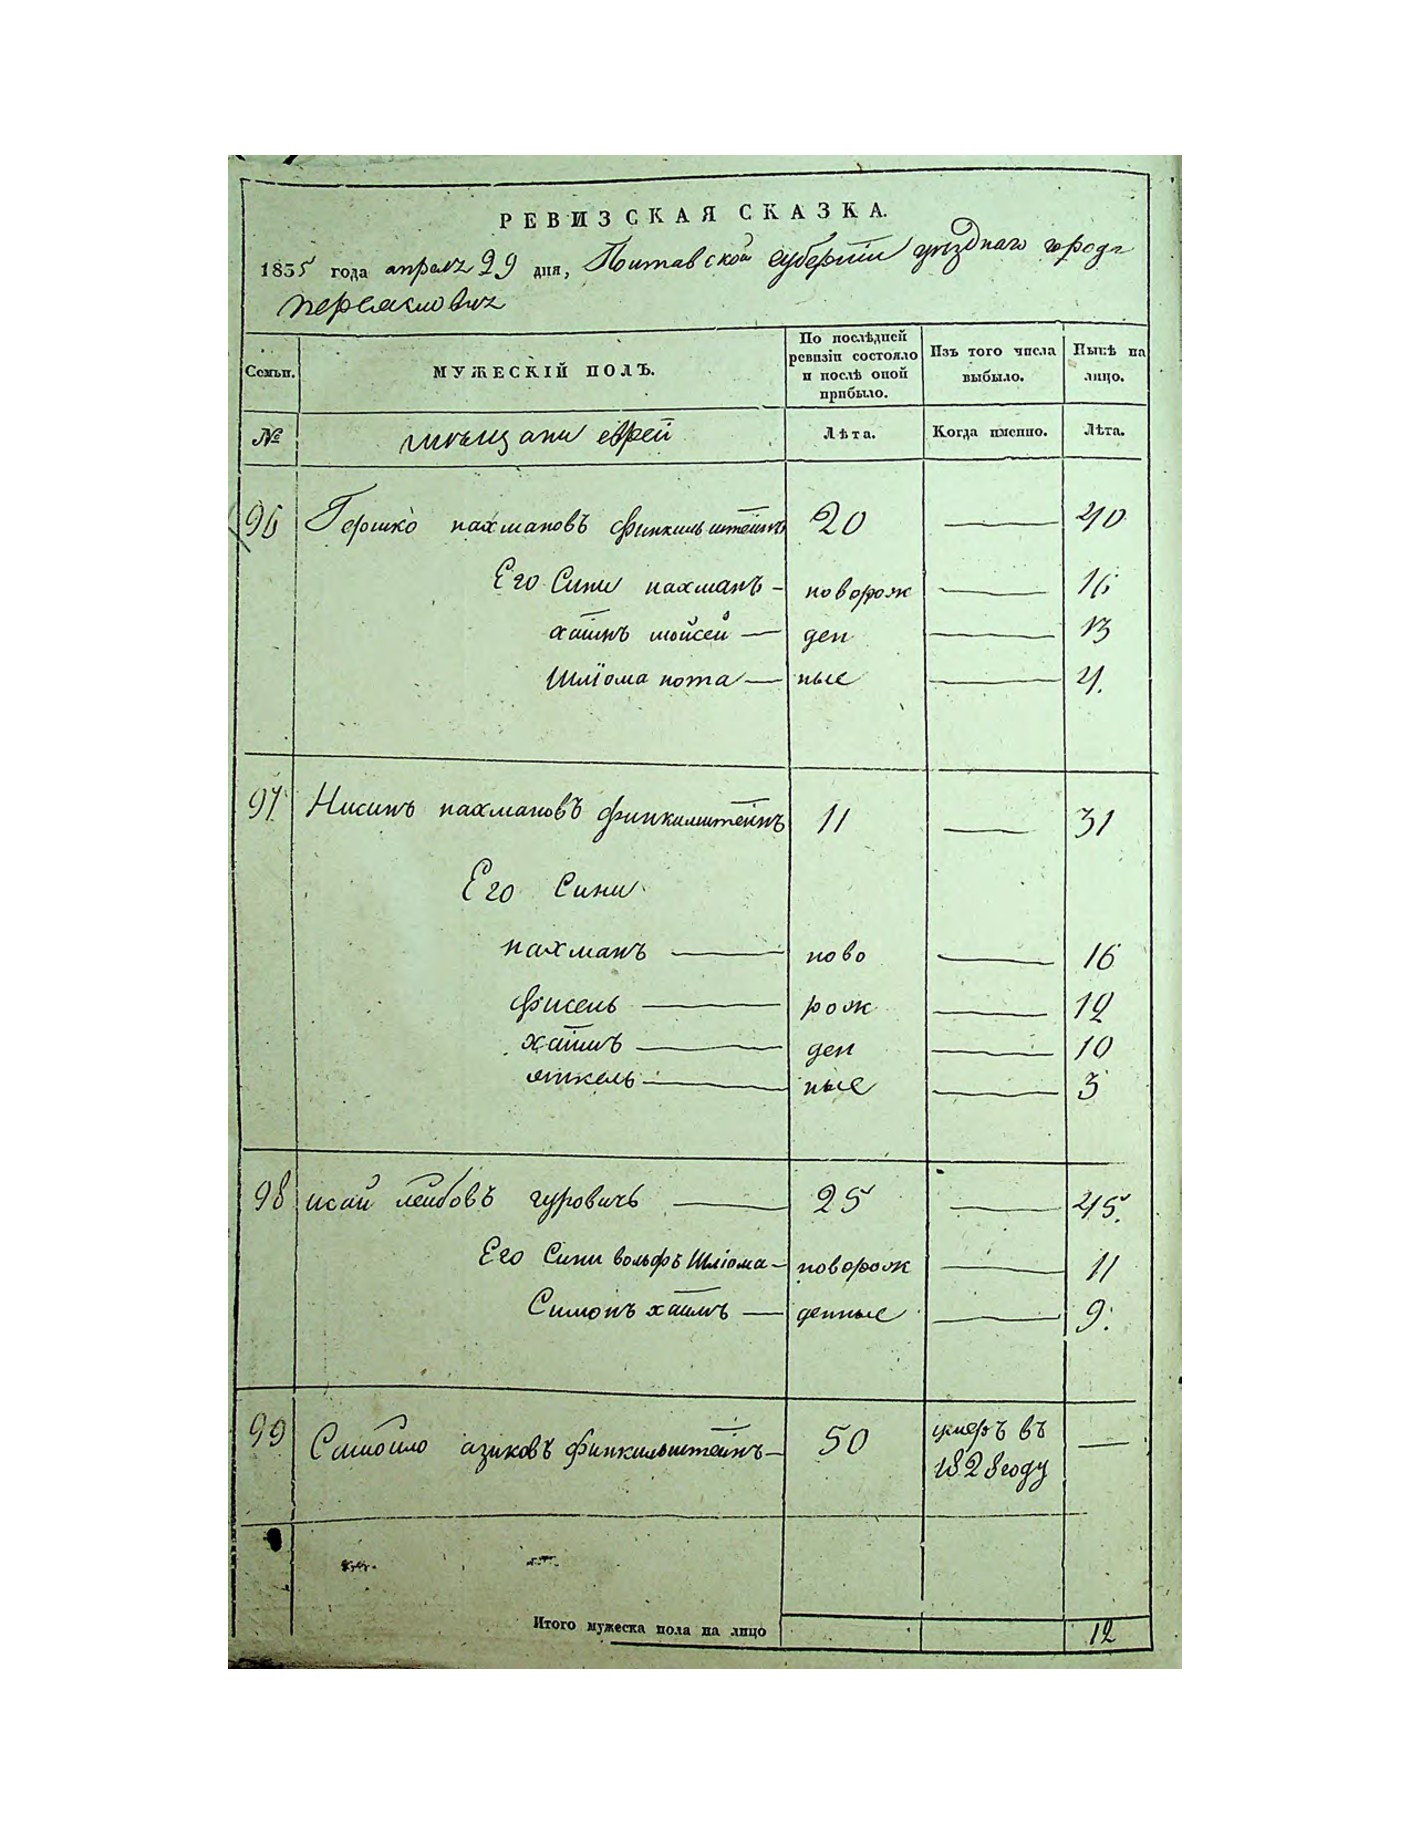 РЕВИЗСКАЯ СКАЗКА.
1835 года апреля 29 дня, Полтавской губернїи уѣзднаго города
переяславля
Семьи. МУЖЕСКІЙ ПОЛЪ. По послѣдней ревизіи состояло и послѣ оной прибыло. Изъ того числа выбыло. Нынѣ на лицо.
№ мѣщани еврей Лѣта. Когда именно. Лѣта.
96 Гершко нахмановъ финкильштейнъ 20 — 40
Его Сини нахманъ — новорож — 16
хаимъ мойсей — ден — 13
Шлїома нота — ные — 4.
97 Нисинъ нахмановъ финкилштейнъ 11 — 31
Его Сини
нахманъ — ново — 16
фисель — рож — 12
хаимъ — ден — 10
янкель — ные — 3
98 исай лейбовъ гуровичъ — 25 — 45.
Его Сини вольфъ Шлїома — новорож — 11
Симонъ хаимъ — денные — 9.
99 Самойло азиковъ финкильштейнъ — 50 умеръ въ —
1828 году
Итого мужеска пола на лицо 12